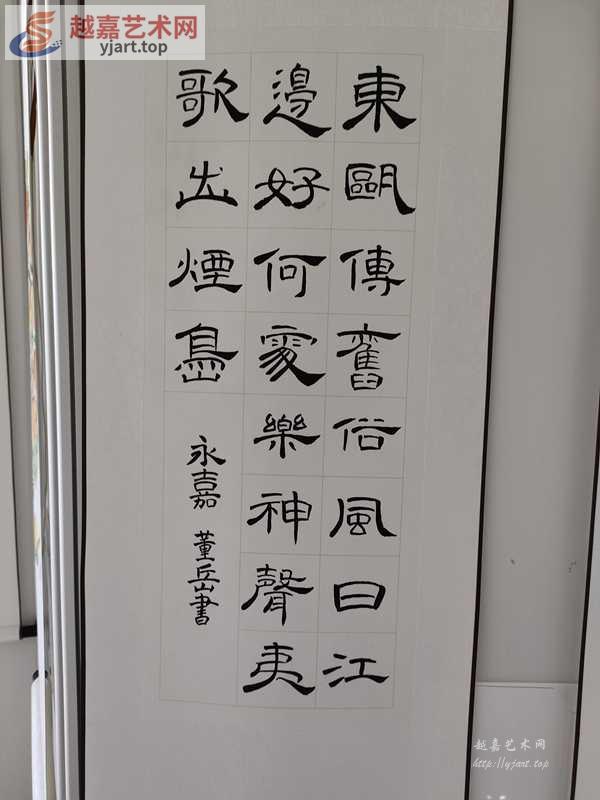 越嘉艺术网
yjart.top
東甌傳舊俗風日江
邊好何處樂神聲夷
歌出煙島
永嘉 董岳書
越嘉艺术网
http://yjart.top